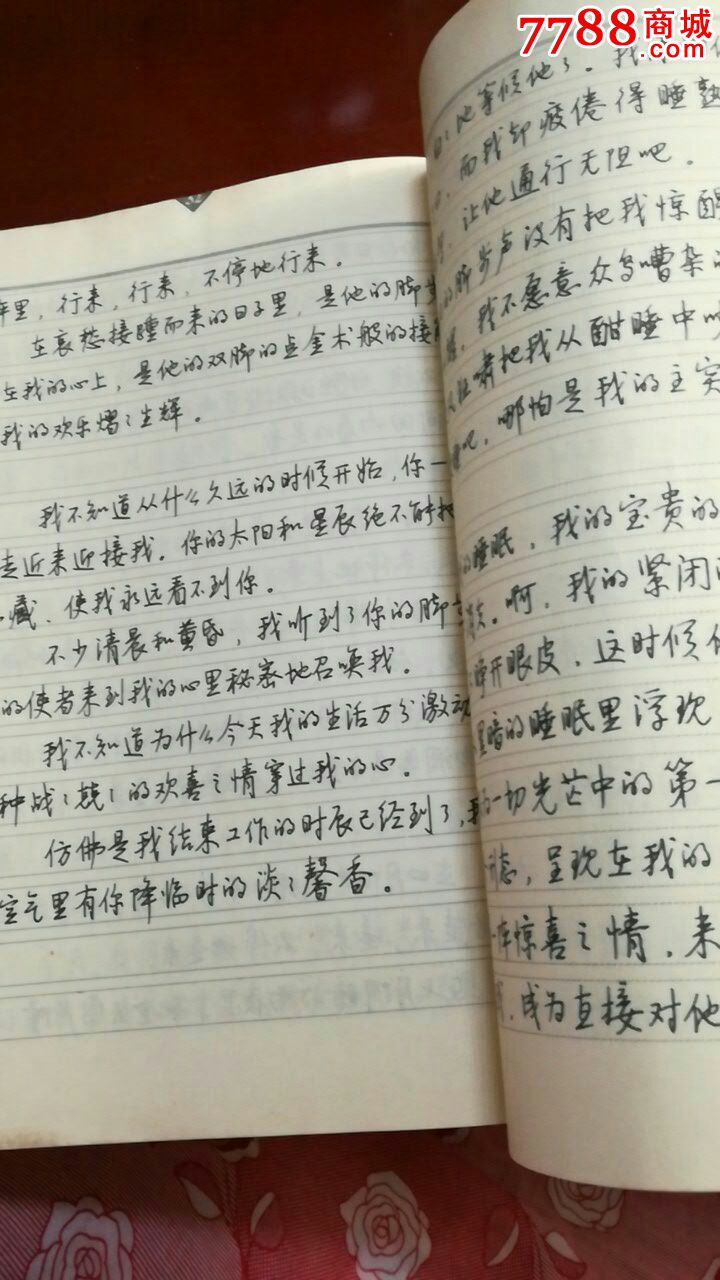 7788商城
阵里，行来，行来，不停地行来。
在哀愁接踵而来的日子里，是他的脚步
在我的心上，是他的双脚的点金术般的接
我的欢乐熠〻生辉。
我不知道从什么久远的时候开始，你一
走近来迎接我。你的太阳和星辰绝不能把
藏、使我永远看不到你。
不少清晨和黄昏，我听到了你的脚
的使者来到我的心里秘密地召唤我。
我不知道为什么今天我的生活万分激动
种战〻兢〻的欢喜之情穿过我的心。
仿佛是我结束工作的时辰已经到了，我
空气里有你降临时的淡〻馨香。
地等候他了。我
而我却疲倦得睡熟
让他通行无阻吧。
的脚步声没有把我惊醒
我不愿意众鸟嘈杂的
把我从酣睡中
吧，哪怕是我的主突
的睡眠，我的宝贵的
啊，我的紧闭
睁开眼皮，这时候
黑暗的睡眠里浮现
一切光芒中的第一
形态，呈现在我的
一阵惊喜之情，来
成为直接对他